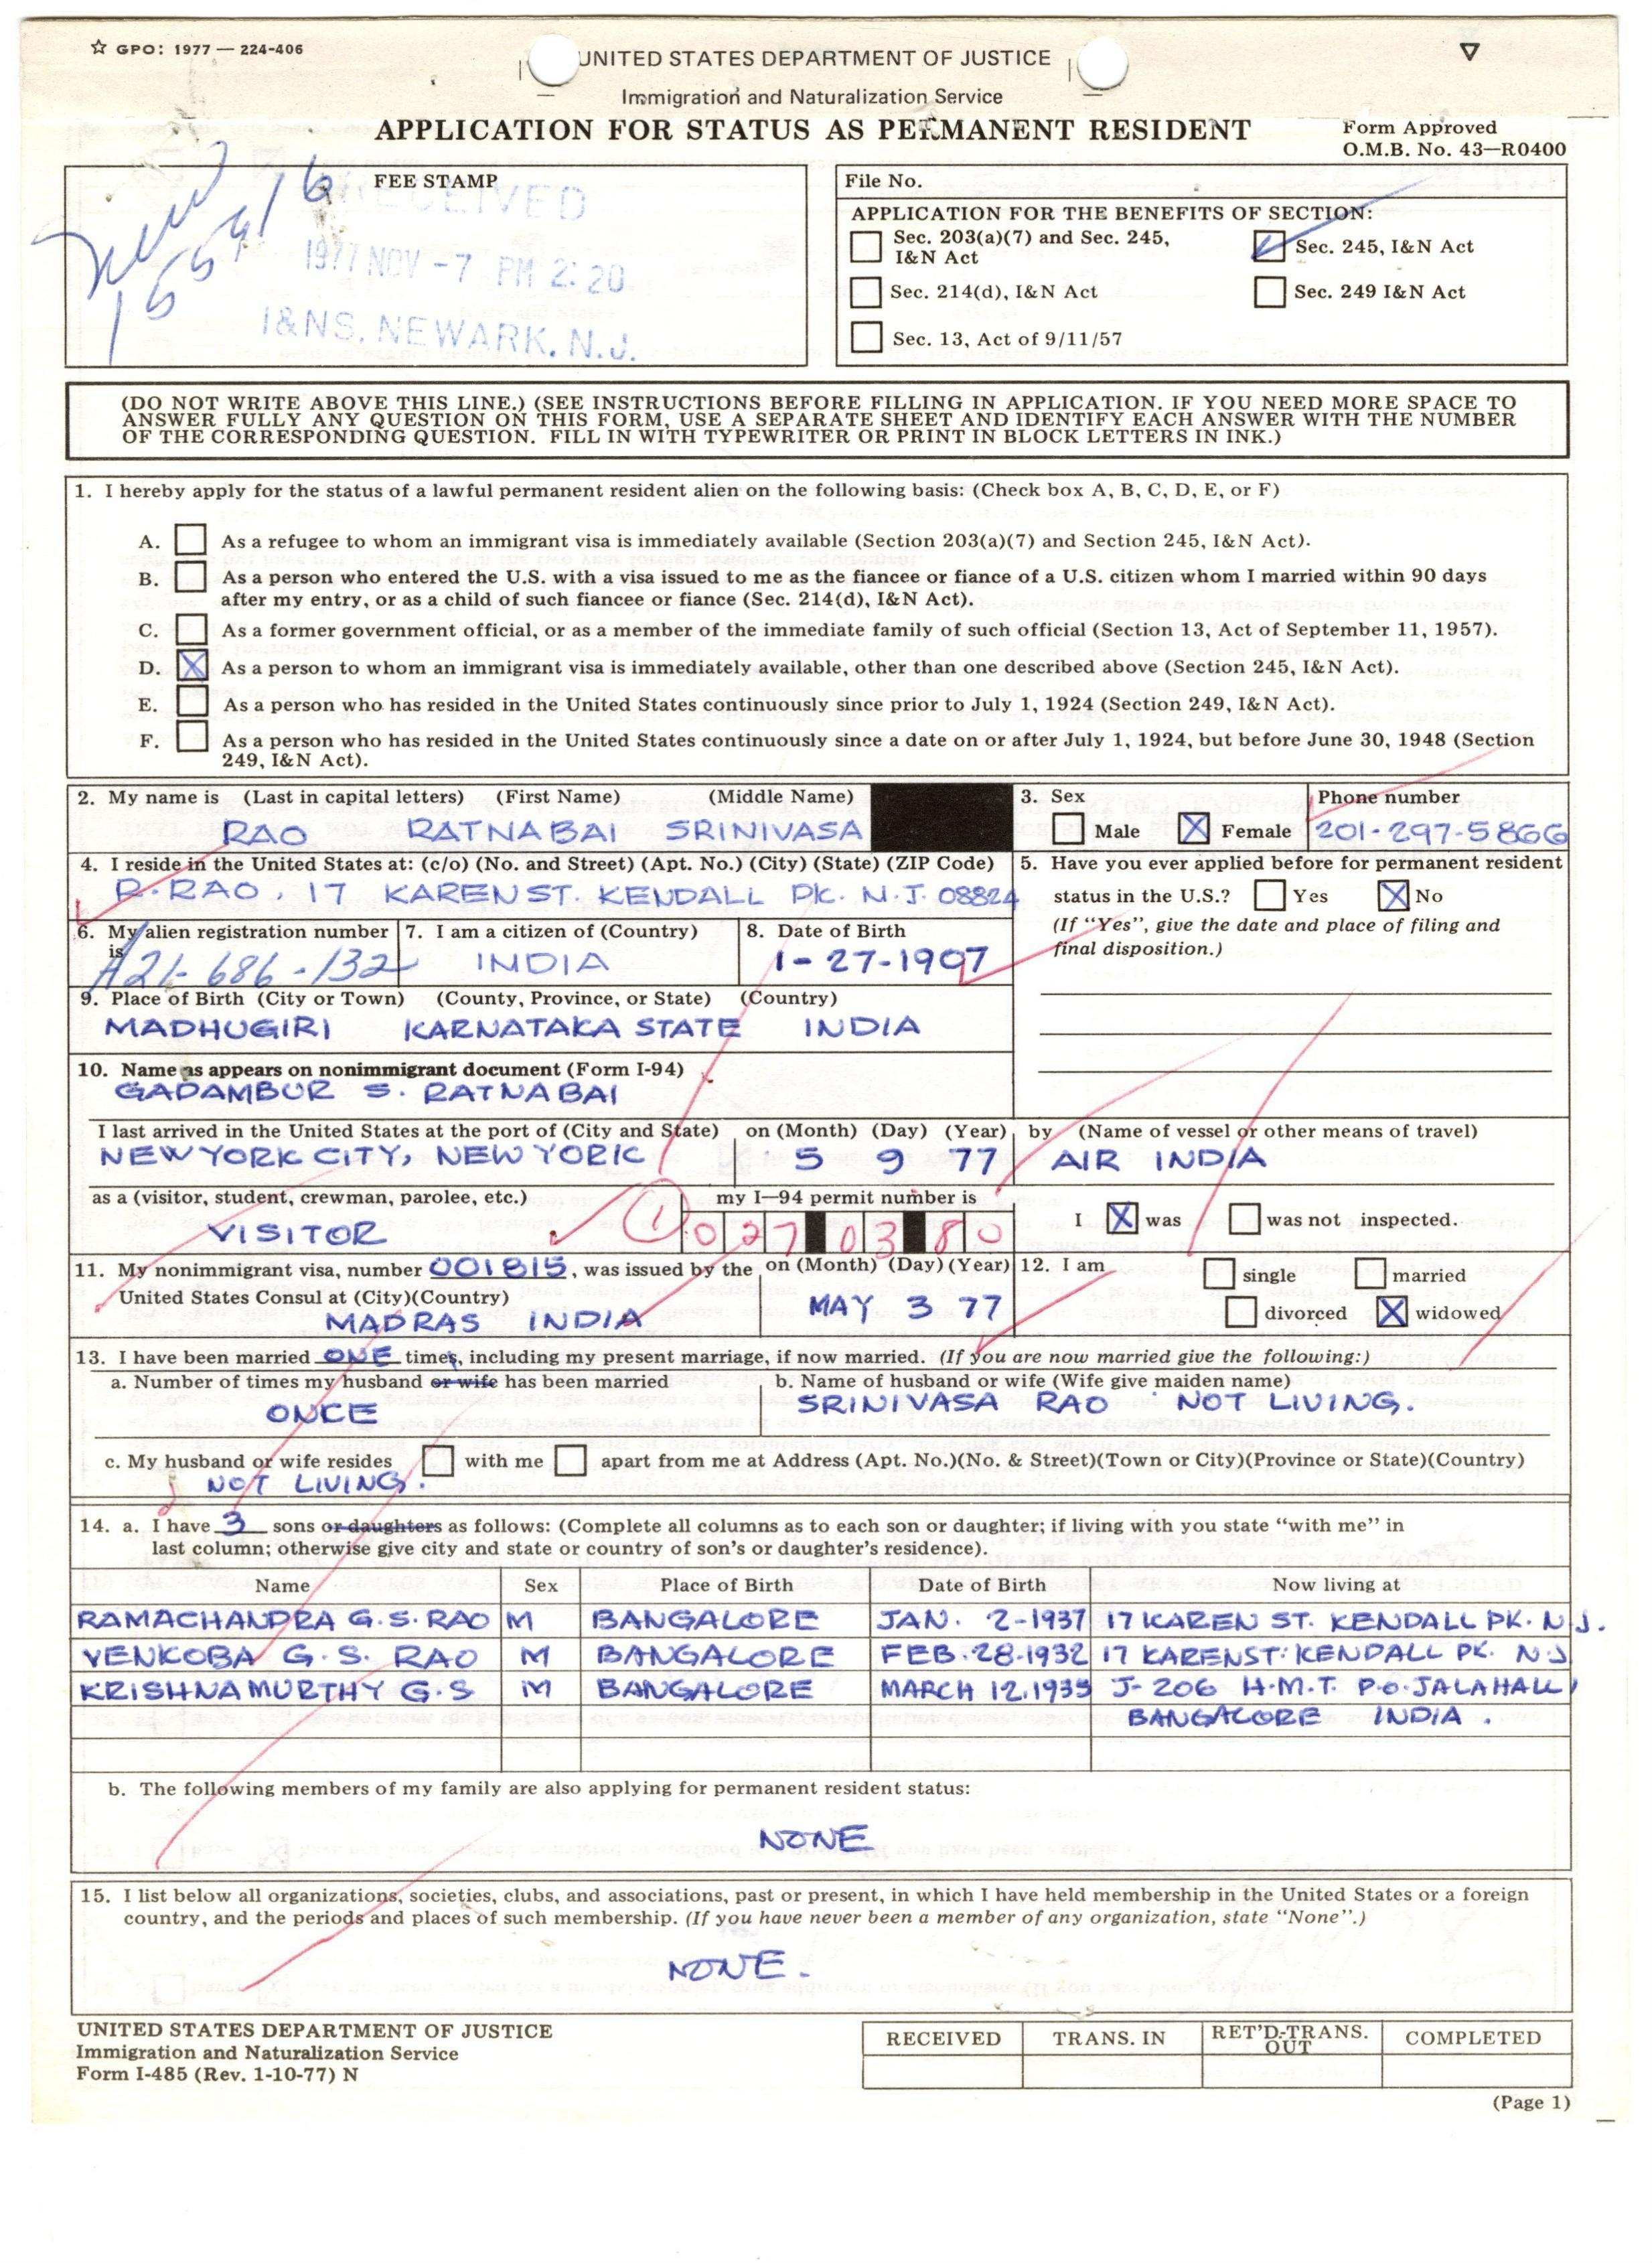 ☆ GPO: 1977 — 224-406
UNITED STATES DEPARTMENT OF JUSTICE
Immigration and Naturalization Service
APPLICATION FOR STATUS AS PERMANENT RESIDENT
Form Approved
O.M.B. No. 43—R0400
FEE STAMP
RECEIVED
1977 NOV -7 PM 2:20
I&NS. NEWARK. N.J.
File No.
APPLICATION FOR THE BENEFITS OF SECTION:
Sec. 203(a)(7) and Sec. 245, I&N Act
Sec. 245, I&N Act
Sec. 214(d), I&N Act
Sec. 249 I&N Act
Sec. 13, Act of 9/11/57
(DO NOT WRITE ABOVE THIS LINE.) (SEE INSTRUCTIONS BEFORE FILLING IN APPLICATION. IF YOU NEED MORE SPACE TO
ANSWER FULLY ANY QUESTION ON THIS FORM, USE A SEPARATE SHEET AND IDENTIFY EACH ANSWER WITH THE NUMBER
OF THE CORRESPONDING QUESTION. FILL IN WITH TYPEWRITER OR PRINT IN BLOCK LETTERS IN INK.)
1. I hereby apply for the status of a lawful permanent resident alien on the following basis: (Check box A, B, C, D, E, or F)
A. As a refugee to whom an immigrant visa is immediately available (Section 203(a)(7) and Section 245, I&N Act).
B. As a person who entered the U.S. with a visa issued to me as the fiancee or fiance of a U.S. citizen whom I married within 90 days
after my entry, or as a child of such fiancee or fiance (Sec. 214(d), I&N Act).
C. As a former government official, or as a member of the immediate family of such official (Section 13, Act of September 11, 1957).
D. X As a person to whom an immigrant visa is immediately available, other than one described above (Section 245, I&N Act).
E. As a person who has resided in the United States continuously since prior to July 1, 1924 (Section 249, I&N Act).
F. As a person who has resided in the United States continuously since a date on or after July 1, 1924, but before June 30, 1948 (Section
249, I&N Act).
2. My name is (Last in capital letters) (First Name) (Middle Name)
RAO RATNABAI SRINIVASA
3. Sex
Male X Female
Phone number
201-297-5866
4. I reside in the United States at: (c/o) (No. and Street) (Apt. No.) (City) (State) (ZIP Code)
R. RAO, 17 KAREN ST. KENDALL PK. N.J. 08824
5. Have you ever applied before for permanent resident
status in the U.S.? Yes X No
(If "Yes", give the date and place of filing and
final disposition.)
6. My alien registration number
is
A21-686-132
7. I am a citizen of (Country)
INDIA
8. Date of Birth
1-27-1907
9. Place of Birth (City or Town) (County, Province, or State) (Country)
MADHUGIRI KARNATAKA STATE INDIA
10. Name as appears on nonimmigrant document (Form I-94)
GADAMBUR S. RATNABAI
I last arrived in the United States at the port of (City and State) on (Month) (Day) (Year) by (Name of vessel or other means of travel)
NEW YORK CITY, NEW YORK 5 9 77 AIR INDIA
as a (visitor, student, crewman, parolee, etc.) my I—94 permit number is
VISITOR 1 027 03 80
I X was was not inspected.
11. My nonimmigrant visa, number 001815, was issued by the on (Month) (Day) (Year)
United States Consul at (City)(Country)
MADRAS INDIA MAY 3 77
12. I am single married
divorced X widowed
13. I have been married ONE times, including my present marriage, if now married. (If you are now married give the following:)
a. Number of times my husband or wife has been married
ONCE
b. Name of husband or wife (Wife give maiden name)
SRINIVASA RAO NOT LIVING.
c. My husband or wife resides with me apart from me at Address (Apt. No.)(No. & Street)(Town or City)(Province or State)(Country)
NOT LIVING.
14. a. I have 3 sons or daughters as follows: (Complete all columns as to each son or daughter; if living with you state "with me" in
last column; otherwise give city and state or country of son's or daughter's residence).
Name Sex Place of Birth Date of Birth Now living at
RAMACHANDRA G.S. RAO M BANGALORE JAN. 2-1937 17 KAREN ST. KENDALL PK. N.J.
VENKOBA G.S. RAO M BANGALORE FEB.28-1932 17 KAREN ST. KENDALL PK. N.J
KRISHNAMURTHY G.S M BANGALORE MARCH 12.1935 J-206 H.M.T. P.O. JALAHALLI
BANGALORE INDIA.
b. The following members of my family are also applying for permanent resident status:
NONE
15. I list below all organizations, societies, clubs, and associations, past or present, in which I have held membership in the United States or a foreign
country, and the periods and places of such membership. (If you have never been a member of any organization, state "None".)
NONE.
UNITED STATES DEPARTMENT OF JUSTICE
Immigration and Naturalization Service
Form I-485 (Rev. 1-10-77) N
RECEIVED TRANS. IN RET'D-TRANS. OUT COMPLETED
(Page 1)